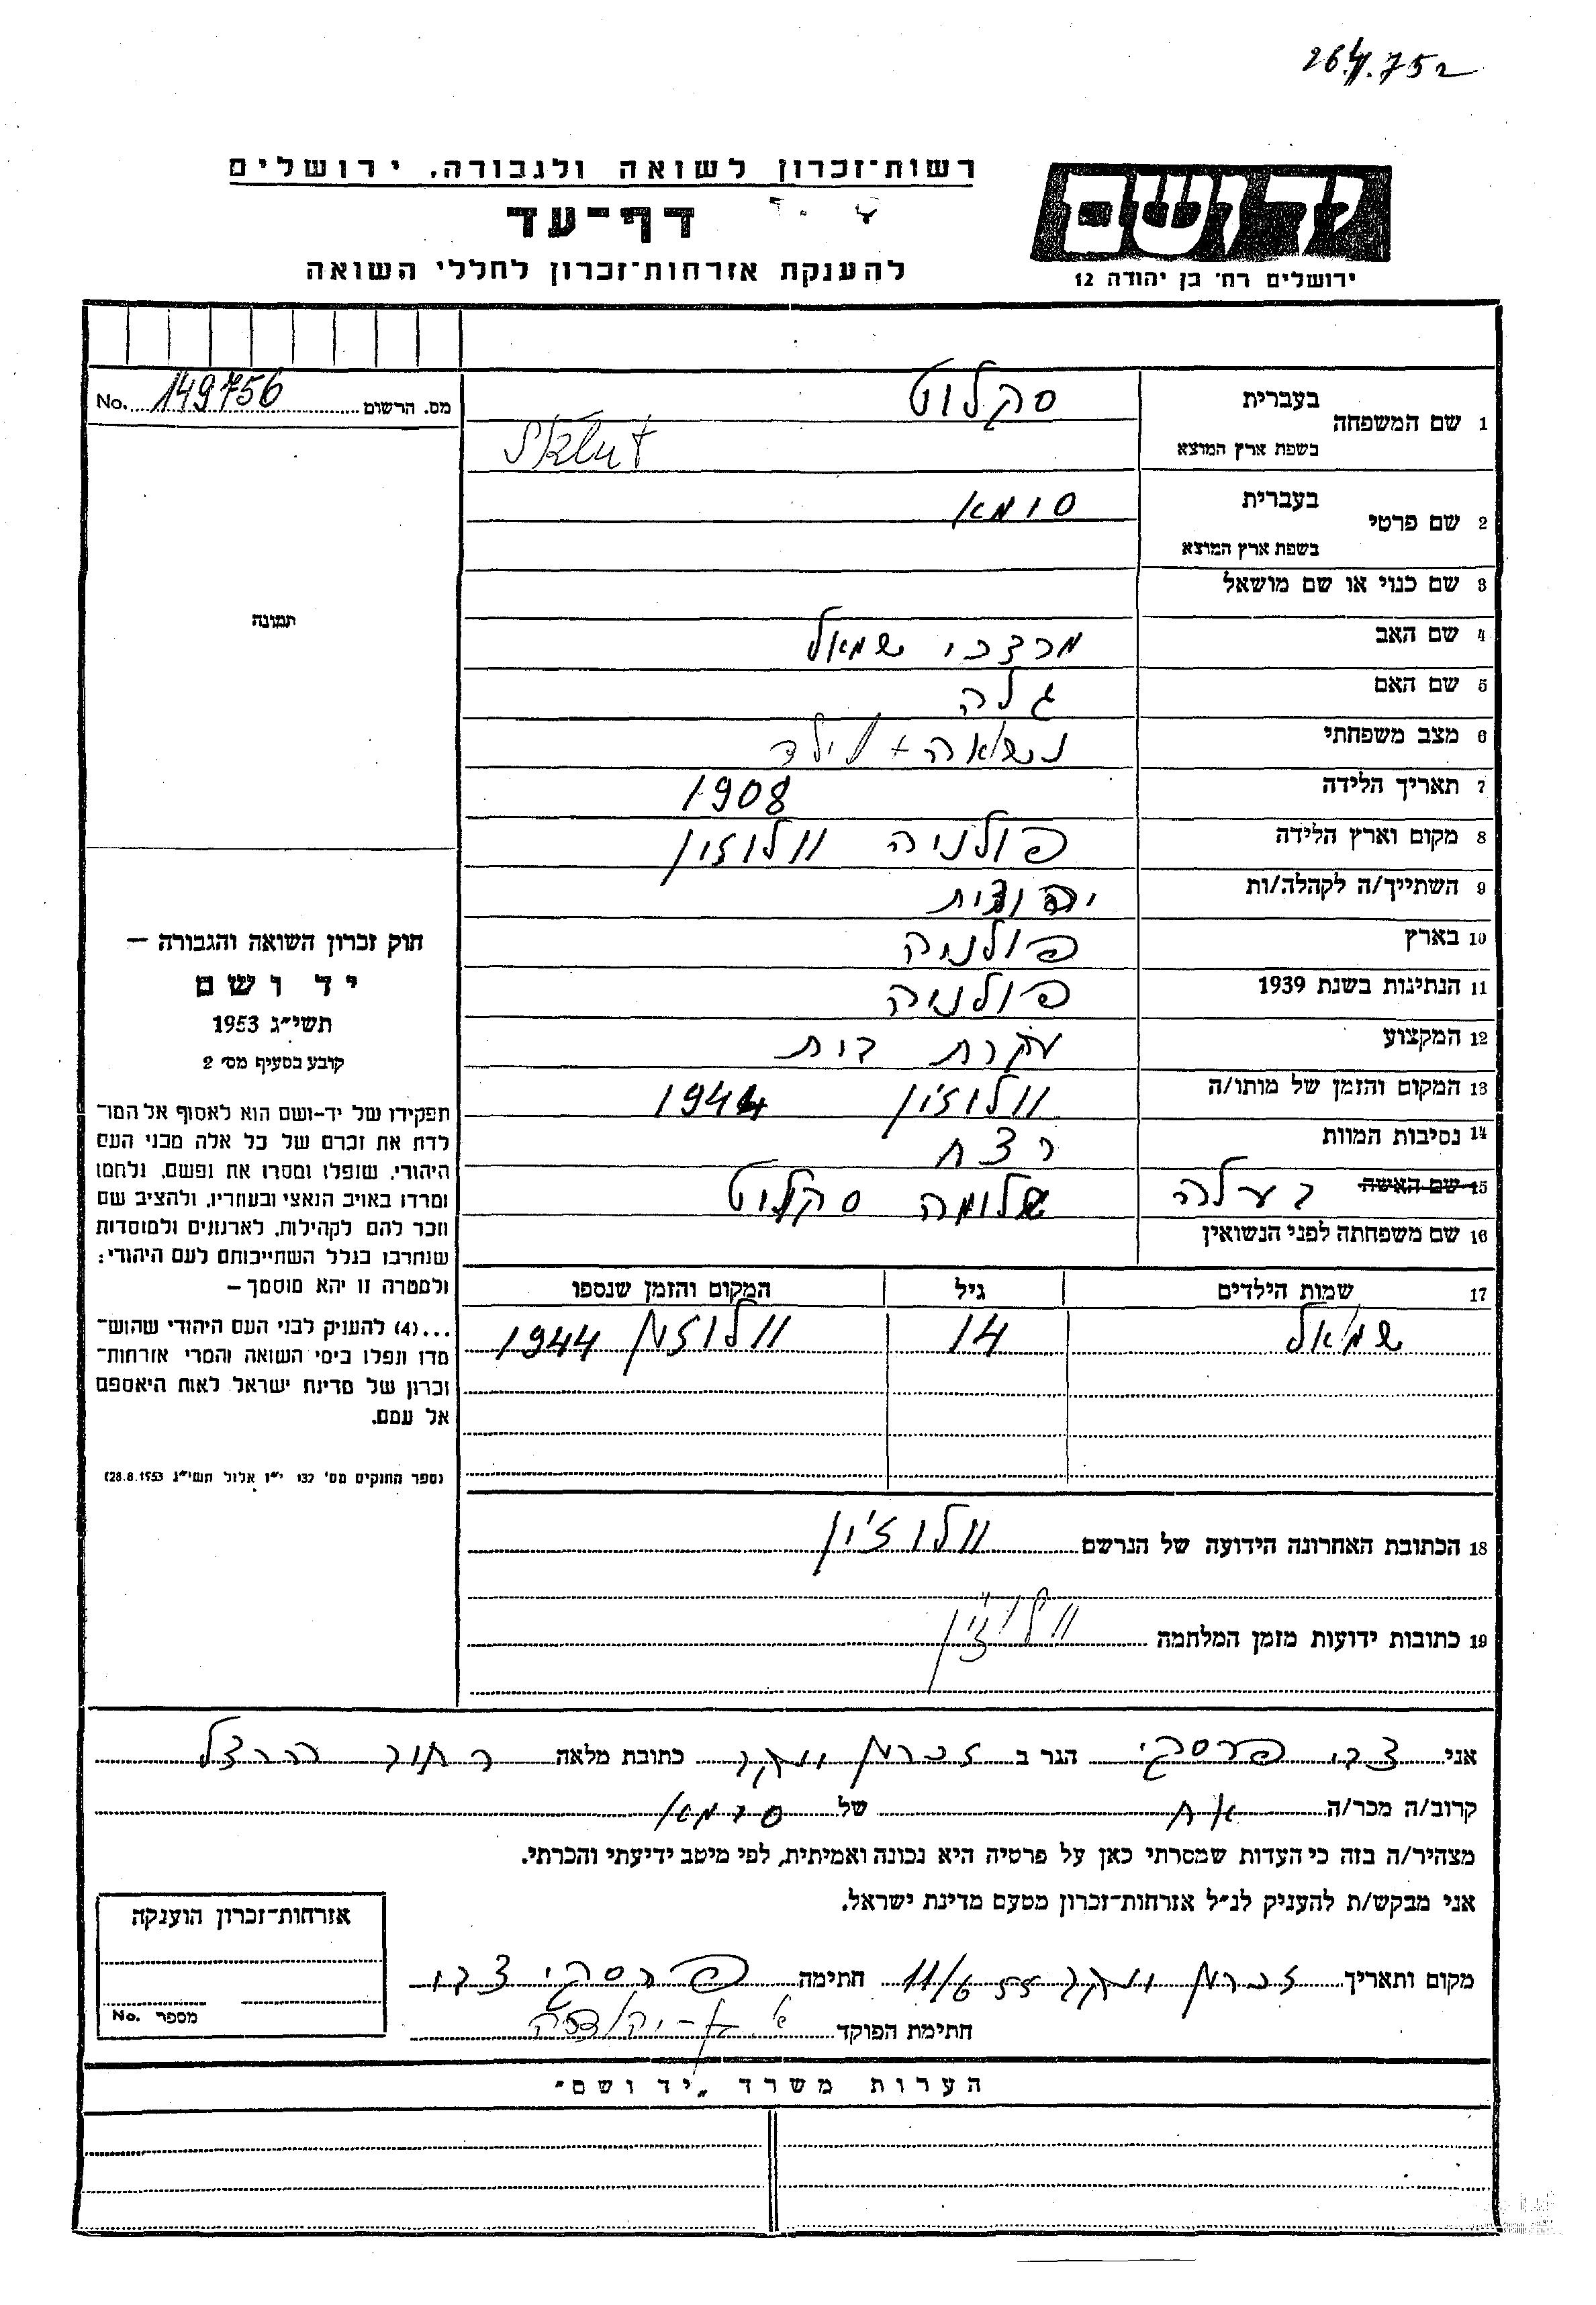 26.4.75
רשות־זכרון לשואה ולגבורה. ירושלים
יד ושם
דף־עד
להענקת אזרחות־זכרון לחללי השואה
ירושלים רח' בן יהודה 12
No. 149756 מס. הרשום
1 שם המשפחה בעברית סקלוט
בשפת ארץ המוצא Sklut
2 שם פרטי בעברית סומא
בשפת ארץ המוצא
3 שם כנוי או שם מושאל
תמונה
4 שם האב מרדכי שמואל
5 שם האם גלה
6 מצב משפחתי נשואה + ילד
7 תאריך הלידה 1908
8 מקום וארץ הלידה פולניה וולוזין
9 השתייך/ה לקהלה/ות יהודית
10 בארץ פולניה
11 הנתינות בשנת 1939 פולניה
12 המקצוע עקרת בית
13 המקום והזמן של מותו/ה וולוז'ין 1944
14 נסיבות המוות רצח
15 שם האשה בעלה שלומה סקלוט
16 שם משפחתה לפני הנשואין
17 שמות הילדים גיל המקום והזמן שנספו
שמואל 14 וולוזין 1944
18 הכתובת האחרונה הידועה של הנרשם וולוז'ין
19 כתובות ידועות מזמן המלחמה וולוז'ין
חוק זכרון השואה והגבורה —
יד ושם
תשי״ג 1953
קובע בסעיף מס׳ 2
תפקידו של יד-ושם הוא לאסוף אל המו־
לדת את זכרם של כל אלה מבני העם
היהודי, שנפלו ומסרו את נפשם, נלחמו
ומרדו באויב הנאצי ובעוזריו, ולהציב שם
וזכר להם לקהילות, לארגונים ולמוסדות
שנחרבו בגלל השתייכותם לעם היהודי:
ולמטרה זו יהא מוסמך —
...(4) להעניק לבני העם היהודי שהוש־
מדו ונפלו בימי השואה והמרי אזרחות־
זכרון של מדינת ישראל לאות היאספם
אל עמם.
(ספר החוקים מס׳ 132 י״ז אלול תשי״ג 28.8.1953)
אני צבי פרסקי הגר ב זכרון יעקב כתובת מלאה רחוב הרצל
קרוב/ה מכר/ה אח של סומא
מצהיר/ה בזה כי העדות שמסרתי כאן על פרטיה היא נכונה ואמיתית, לפי מיטב ידיעתי והכרתי.
אני מבקש/ת להעניק לנ״ל אזרחות־זכרון מטעם מדינת ישראל.
מקום ותאריך זכרון יעקב 11/6 55 חתימה פרסקי צבי
חתימת הפוקד
אזרחות־זכרון הוענקה
מספר No.
הערות משרד „יד ושם״